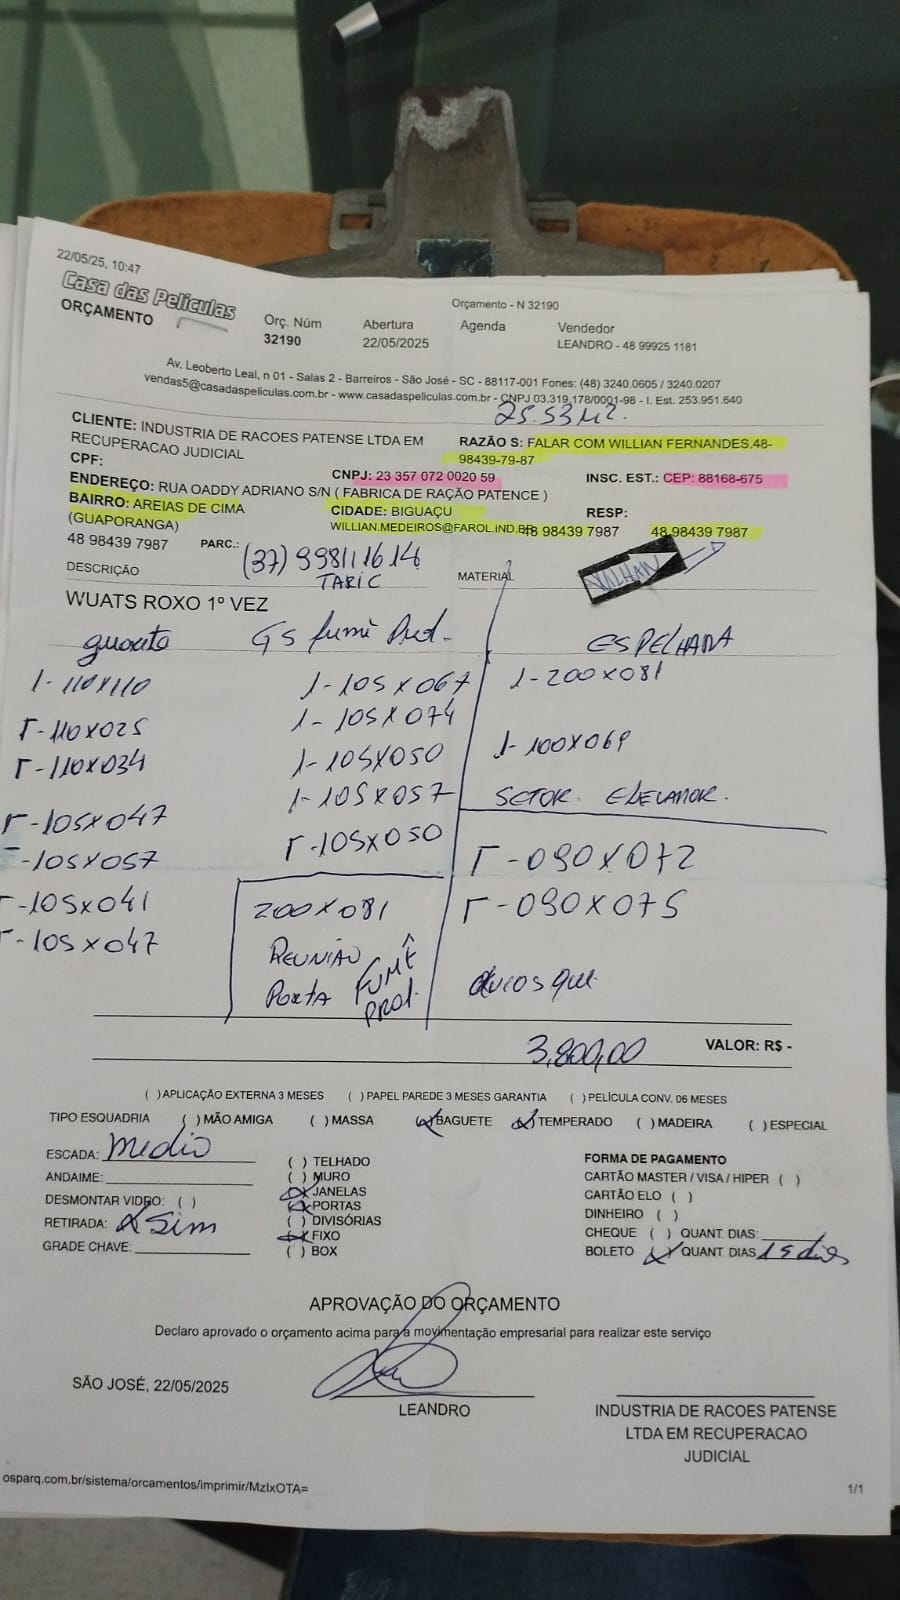 22/05/25, 10:47
Orçamento - N 32190
Casa das Películas
ORÇAMENTO
Orç. Núm
32190
Abertura
22/05/2025
Agenda
Vendedor
LEANDRO - 48 99925 1181
Av. Leoberto Leal, n 01 - Salas 2 - Barreiros - São José - SC - 88117-001 Fones: (48) 3240.0605 / 3240.0207
vendas5@casadaspeliculas.com.br - www.casadaspeliculas.com.br - CNPJ 03.319.178/0001-98 - I. Est. 253.951.640
25.53 M2.
CLIENTE: INDUSTRIA DE RACOES PATENSE LTDA EM
RECUPERACAO JUDICIAL
RAZÃO S: FALAR COM WILLIAN FERNANDES.48-
98439-79-87
CPF:
CNPJ: 23 357 072 0020 59
INSC. EST.: CEP: 88168-675
ENDEREÇO: RUA OADDY ADRIANO S/N ( FABRICA DE RAÇÃO PATENCE )
BAIRRO: AREIAS DE CIMA
(GUAPORANGA)
CIDADE: BIGUAÇU
RESP:
WILLIAN.MEDEIROS@FAROL.IND.BR
48 98439 7987
48 98439 7987
48 98439 7987
PARC.:
(37) 998111614
TARIC
DESCRIÇÃO
MATERIAL
WUATS ROXO 1º VEZ
GS fumê Prof.
ESPELHADA
1-110X110
1-105X067
1-200X081
1-110X025
1-105X074
1-110X034
1-105X050
1-100X069
1-105X047
1-105X057
SETOR. ELEVADOR.
1-105X057
1-105X050
1-090X072
1-105X041
200X081
1-090X075
1-105X047
REUNIÃO
PORTA
FUMÊ
PROF.
3,800,00
VALOR: R$ -
( )APLICAÇÃO EXTERNA 3 MESES ( ) PAPEL PAREDE 3 MESES GARANTIA ( ) PELÍCULA CONV. 06 MESES
TIPO ESQUADRIA ( ) MÃO AMIGA ( ) MASSA (X)BAGUETE (X)TEMPERADO ( ) MADEIRA ( ) ESPECIAL
ESCADA: Medio
ANDAIME:
DESMONTAR VIDRO: ( )
RETIRADA: (X) Sim
GRADE CHAVE:
( ) TELHADO
( ) MURO
(X) JANELAS
(X) PORTAS
( ) DIVISÓRIAS
(X) FIXO
( ) BOX
FORMA DE PAGAMENTO
CARTÃO MASTER / VISA / HIPER ( )
CARTÃO ELO ( )
DINHEIRO ( )
CHEQUE ( ) QUANT. DIAS:
BOLETO (X) QUANT. DIAS 15 dias
APROVAÇÃO DO ORÇAMENTO
Declaro aprovado o orçamento acima para a movimentação empresarial para realizar este serviço
SÃO JOSÉ, 22/05/2025
LEANDRO
INDUSTRIA DE RACOES PATENSE
LTDA EM RECUPERACAO
JUDICIAL
osparq.com.br/sistema/orcamentos/imprimir/MzIxOTA=
1/1